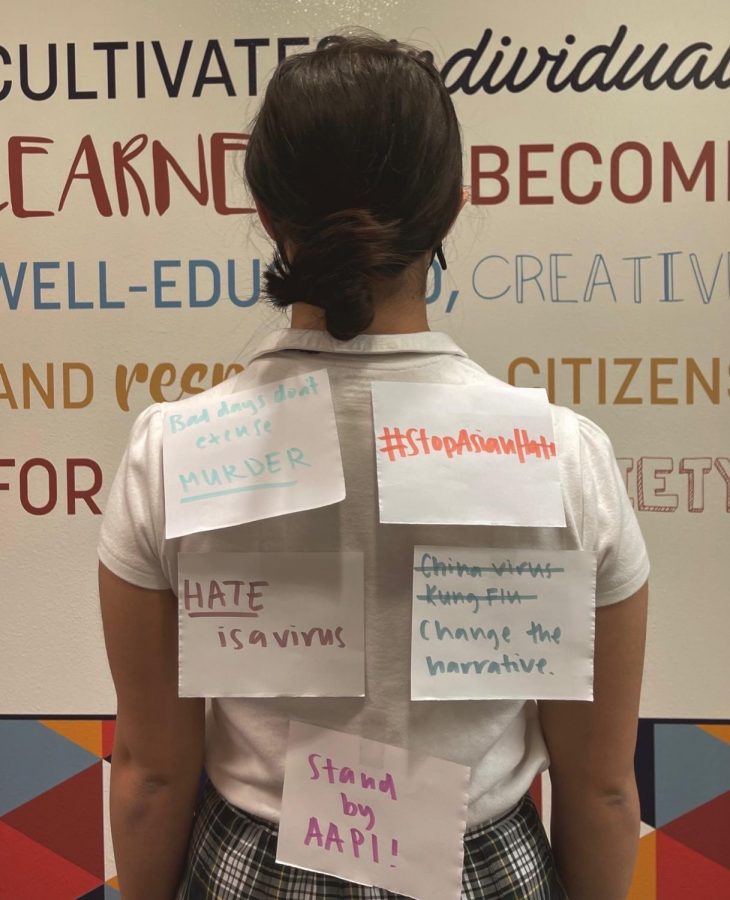 CULTIVATE individual
LEARNE BECOM
WELL-EDU D, CREATIVE
AND resp CITIZENS
FOR IETY
Bad days dont
excuse
MURDER
#StopAsianHate
HATE
is a virus
China virus
Kung Flu
Change the
narrative.
Stand
by
AAPI!